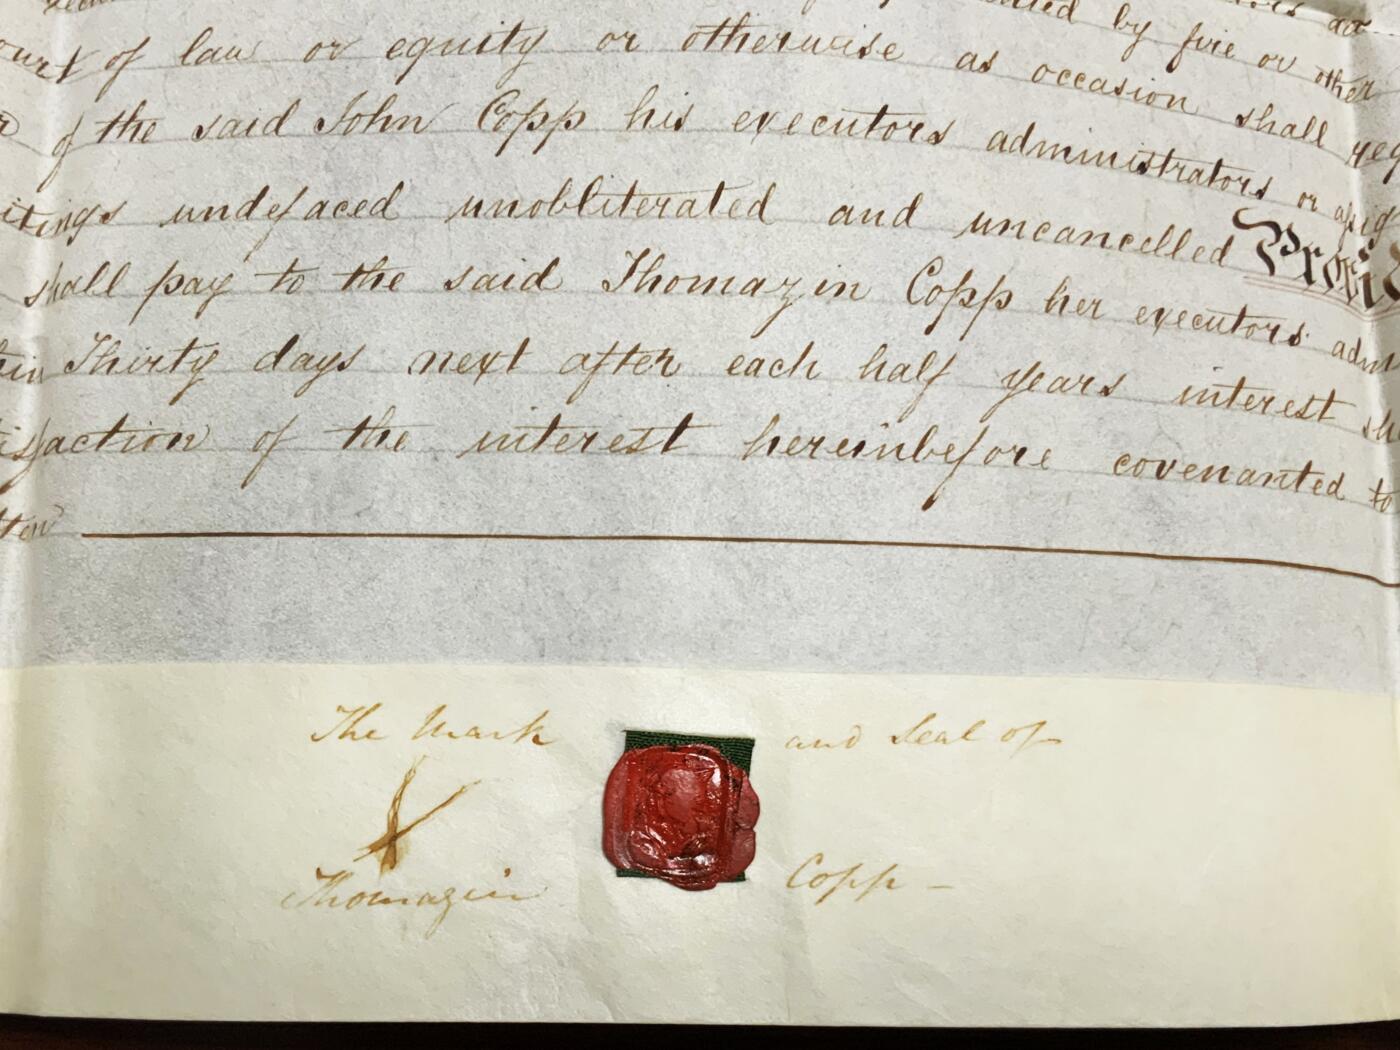 by fire or other
of law or equity or otherwise as occasion shall
of the said John Copp his executors administrators or
undefaced unobliterated and uncancelled
shall pay to the said Thomazin Copp her executors
Thirty days next after each half years interest
of the interest hereinbefore covenanted to
The Mark and Seal of
X
Thomazin Copp –